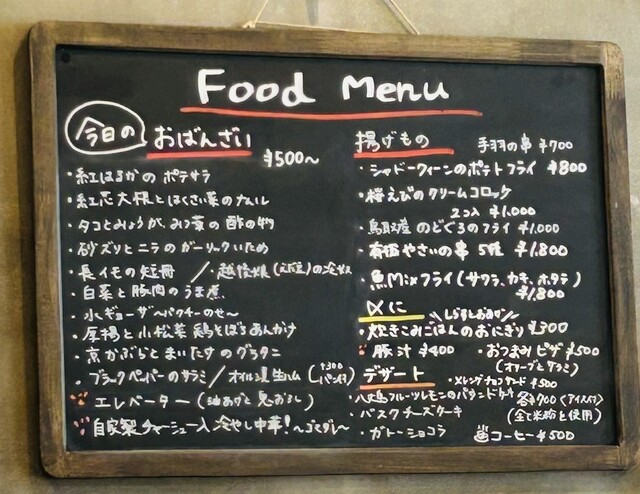 Food Menu
今日の おばんざい ¥500〜
・紅はるかの ポテサラ
・紅芯大根とはくさい菜のナムル
・タコとみょうが、みつ葉の酢の物
・砂ズリとニラのガーリックいため
・長イモの短冊 / ・越後娘(えだ豆)の冷
・白菜と豚肉のうま煮
・水ギョーザ〜パクチーのせ〜
・厚揚と小松菜 鶏そぼろあんかけ
・京かぶらとまいたけのグラタン
・ブラックペーパーのサラミ / オイル 生ハム (+300 パン付)
・エレベーター (油あげと鬼おろし)
・自家製チャーシュー入 冷やし中華!〜ゴマダレ〜
揚げもの 手羽の串 ¥700
・シャドークィーンのポテトフライ ¥800
・桜えびのクリームコロッケ
2コ入 ¥1.000
・鳥取産のどぐろのフライ ¥1.000
・有機やさいの串 5種 ¥1.800
・魚Mixフライ (サワラ、カキ、ホタテ)
¥1.800
〆に
・炊きこみごはんのおにぎり ¥300
・豚汁 ¥400 ・おつまみピザ ¥500
(オリーブとサラミ)
デザート ・メレンゲチョコサンド ¥500
・八丈島フルーツレモンのパウンドケーキ 各¥700 〈アイス付〉
・バスクチーズケーキ (全て米粉を使用)
・ガトーショコラ コーヒー ¥500